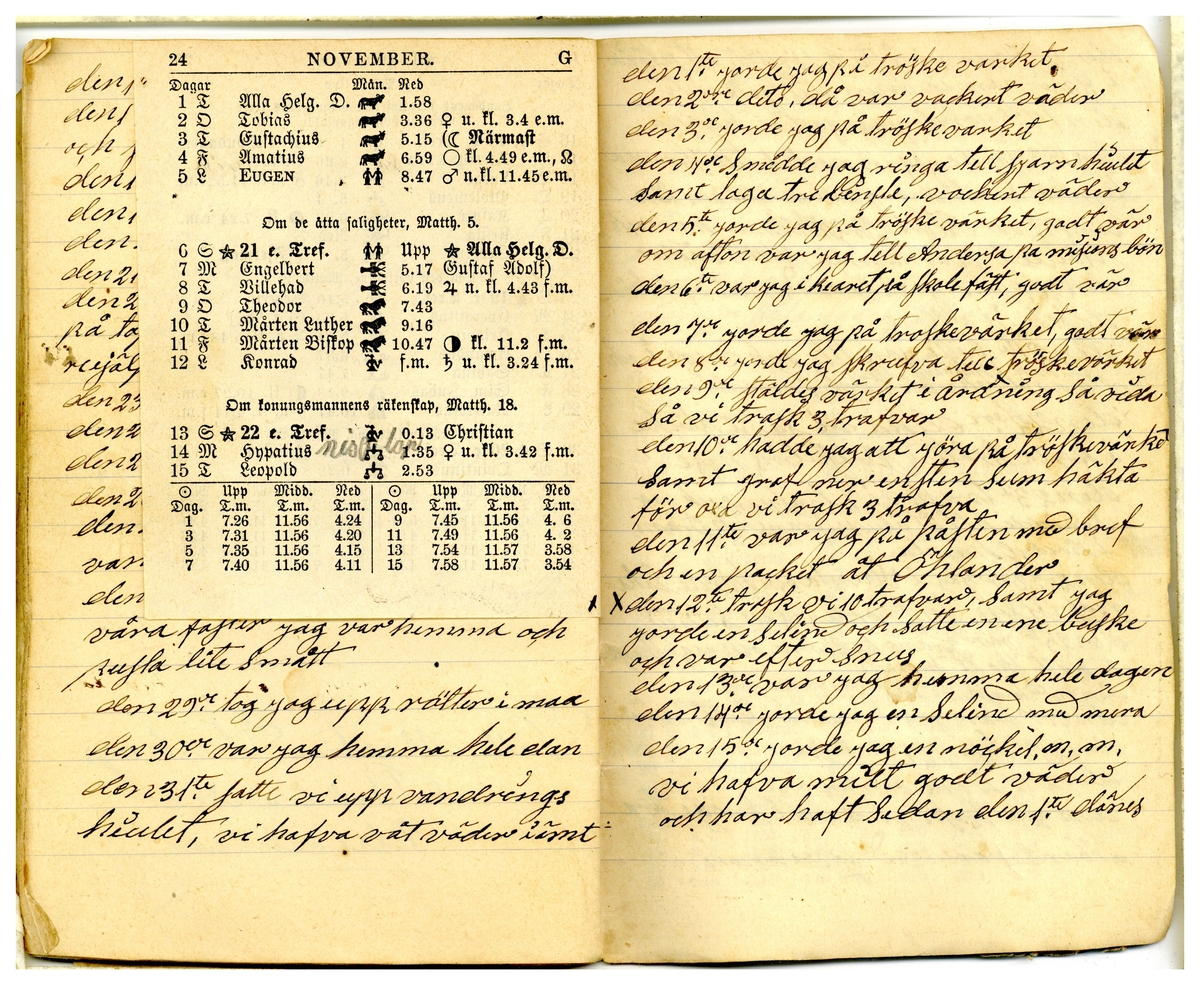 24 NOVEMBER. G
Dagar Mån. Ned
1 T Alla Helg. D. 1.58
2 O Tobias 3.36 ♀ u. kl. 3.4 e.m.
3 T Eustachius 5.15 (☾ Närmast
4 F Amatius 6.59 ○ kl. 4.49 e.m., ☊
5 L EUGEN 8.47 ♂ n. kl. 11.45 e.m.
Om de åtta saligheter, Matth. 5.
6 S ★ 21 e. Tref. Upp ★ Alla Helg. D.
7 M Engelbert 5.17 Gustaf Adolf)
8 T Villehad 6.19 ♃ n. kl. 4.43 f.m.
9 O Theodor 7.43
10 T Mårten Luther 9.16
11 F Mårten Biskop 10.47 ◑ kl. 11.2 f.m.
12 L Konrad f.m. ♄ u. kl. 3.24 f.m.
Om konungsmannens räkenskap, Matth. 18.
13 S ★ 22 e. Tref. 0.13 Christian
14 M Hypatius 1.35 ♀ u. kl. 3.42 f.m.
15 T Leopold 2.53
☉ Upp Midd. Ned ☉ Upp Midd. Ned
Dag. T.m. T.m. T.m. Dag. T.m. T.m. T.m.
1 7.26 11.56 4.24 9 7.45 11.56 4. 6
3 7.31 11.56 4.20 11 7.49 11.56 4. 2
5 7.35 11.56 4.15 13 7.54 11.57 3.58
7 7.40 11.56 4.11 15 7.58 11.57 3.54
våra faster yag var hemma och
pusla lite smått
den 29de tog yag upp rötter i maa
den 30de var yag hemma hele dan
den 31te satte vi upp vandrings
hiulet, vi hafva våt väder iämt
den 1te yorde yag på tröske varket
den 2dre dito, då var vackert väder
den 3de yorde yag på tröskevarket
den 4de smedde yag ringa tell sparn hiulet
samt laga tre vackert väder
den 5te yorde yag på tröske värket, godt vär
om afton var yag tell Andersa pa misions bön
den 6te var yag i kiaret på skole fäst, godt vär
den 7de yorde yag på troskevärket, godt vär
den 8de yorde yag skrufva tell tröskevärket
den 9de stäldes värket i årdning så vida
så vi trask 3 trafvar
den 10de hadde yag att yöra på tröskevärke
samt graf ner en sten sum häkta
för vi trask 3 trafva
den 11te var yag på påsten med bref
och en packet åt Öhlander
X den 12te trask vi 10 trafvar, samt yag
yorde en selind och satte en ene buske
och var efter snus
den 13de var yag hemma hele dagen
den 14de yorde yag en Selind med mera
den 15de yorde yag en nöckel, m, m,
vi hafva mitt godt väder
och har haft sedan den 1te dänes